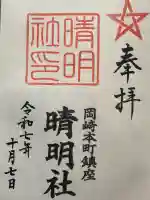 奉拝
晴明社印
岡崎本町鎮座
晴明社
令和七年
十月七日